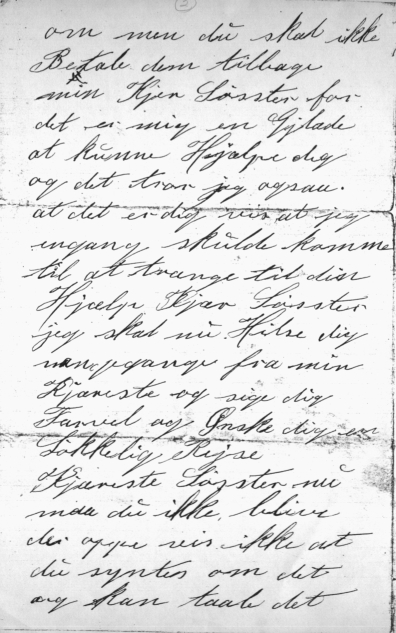 2
om men du skal ikke
Betale dem tilbage
min Kjer Søsster for
det er mig en Gjlade
at kunne Hjælpe deg
og det tror jeg ogsaa.
at det er dig vis at jeg
engang skulde komme
til at trænge til din
Hjælp Kjær Søsster
jeg skal nu Hilse dig
mangegange fra min
Kjæreste og sige dig
Farvel og Ønske dig en
Løkkelig Rejse
Kjæreste Søsster nu
maa du ikke blive
der oppe vis ikke at
du syntes om det
og kan taale det